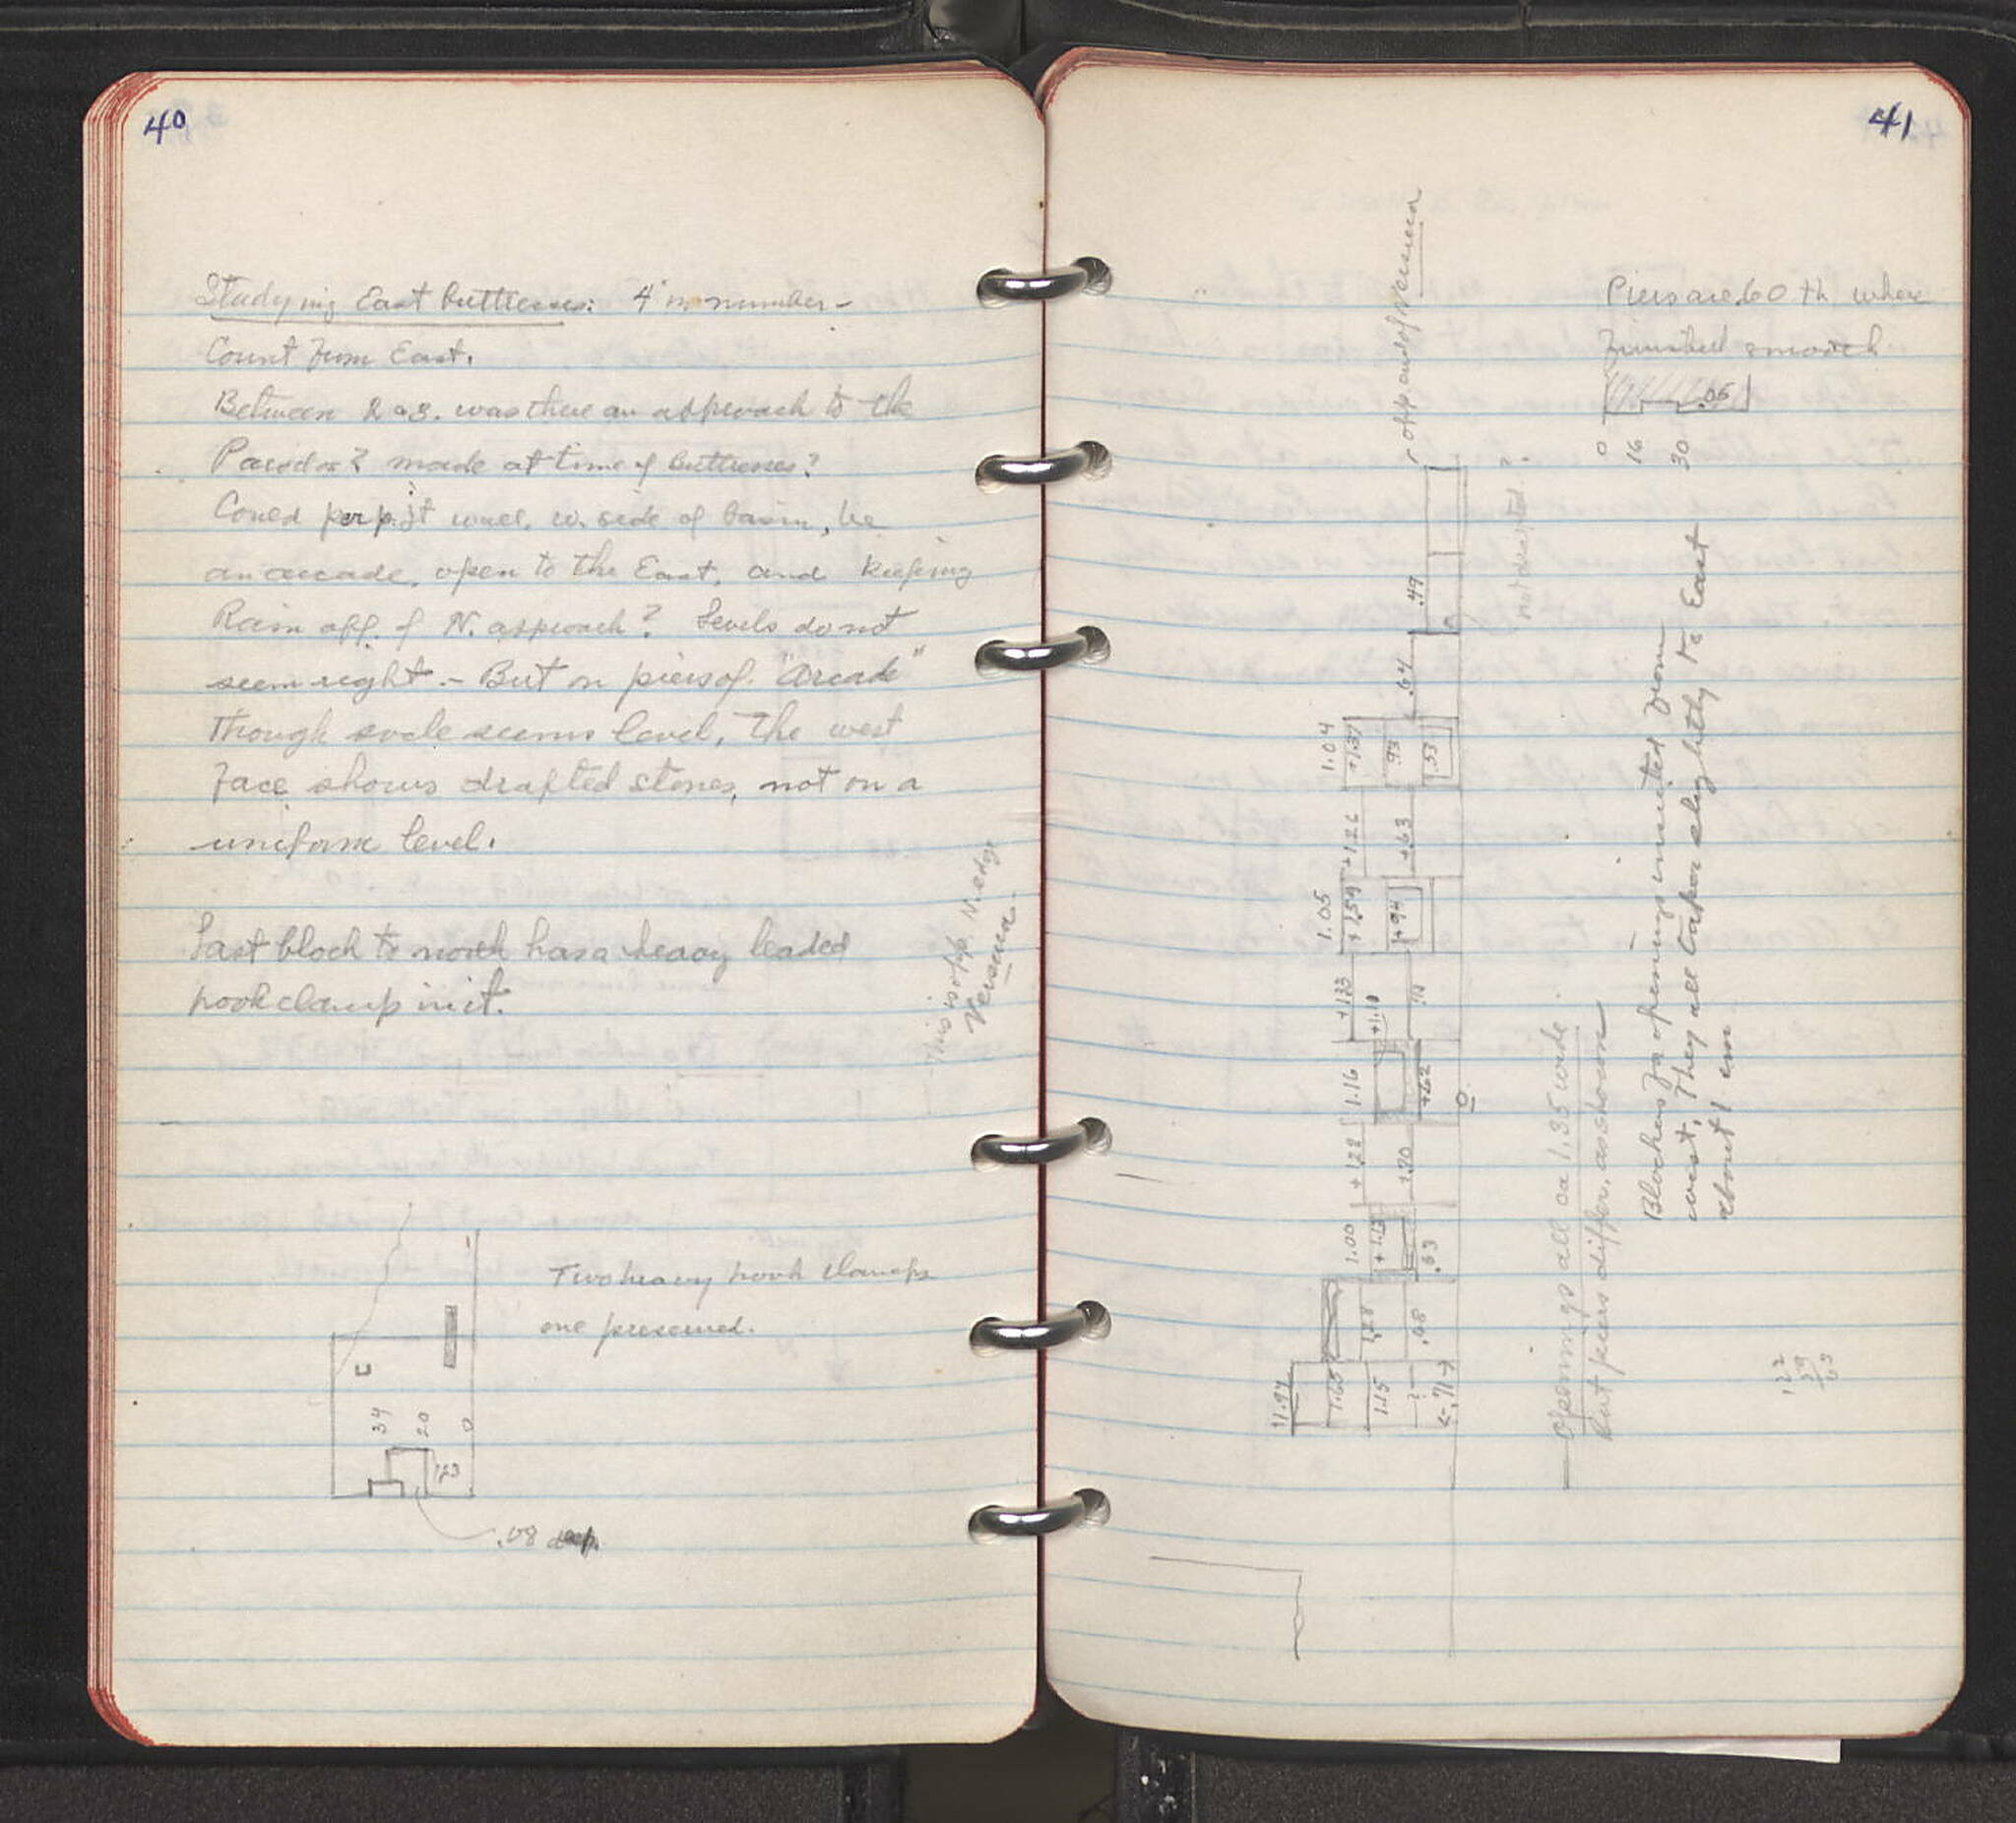 40
Studying East buttresses: 4 in number -
Count from East.
Between 2 & 3. was there an approach to the
Parodos? made at time of buttresses?
Could perp. jt wall, w. side of basin, be
an arcade, open to the East, and keeping
Rain off of N. approach? Levels do not
seem right. - But on piers of "Arcade"
though socle seems level, the west
face shows drafted stones, not on a
uniform level.
Last block to north has a heavy leaded
hook clamp in it.
This is opp N. edge
Versura.
Two heavy hook clamps
one preserved.
34
20
0
.08 deep.
41
opp end of Versura
Piers are .60 th where
finished smooth
.05
0
16
30
not drafted?
.49
.64
1.04
+1.37
.93
.53
+1.26
+.63
1.05
+1.59
+.94
+1.33
+1.11
1.16
+.62
0
+1.22
1.00
+1.13
.63
1.28
.68
11.97
1.65
1.15
?
←.71→
Openings all ca 1.35 wide
but piers differ, as shown
Blockers for openings inserted from
west, They all taper slightly to East
about 1 cm
122
59
63